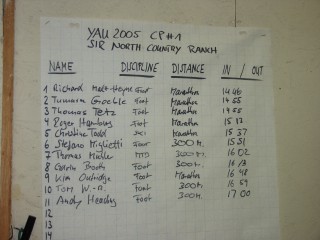 YAU 2005 CP#1
SIR NORTH COUNTRY RANCH
NAME DISCIPLINE DISTANCE IN / OUT
1 Richard Foot Marathon 14 46
2 Foot Marathon 14 55
3 Thomas Tetz Foot Marathon 14 55
4 Roger Foot Marathon 15 13
5 Christine Todd Marathon 15 37
6 Stefano Miglietti Foot 300 M. 15 51
7 Thomas MTB 300 M. 16 02
8 Booth Foot 300 M. 16 13
9 Kim Foot Marathon 16 48
10 Tom W.-A. Foot 300 M. 16 59
11 Andy Heading Foot 300 M. 17 00
12
13
14